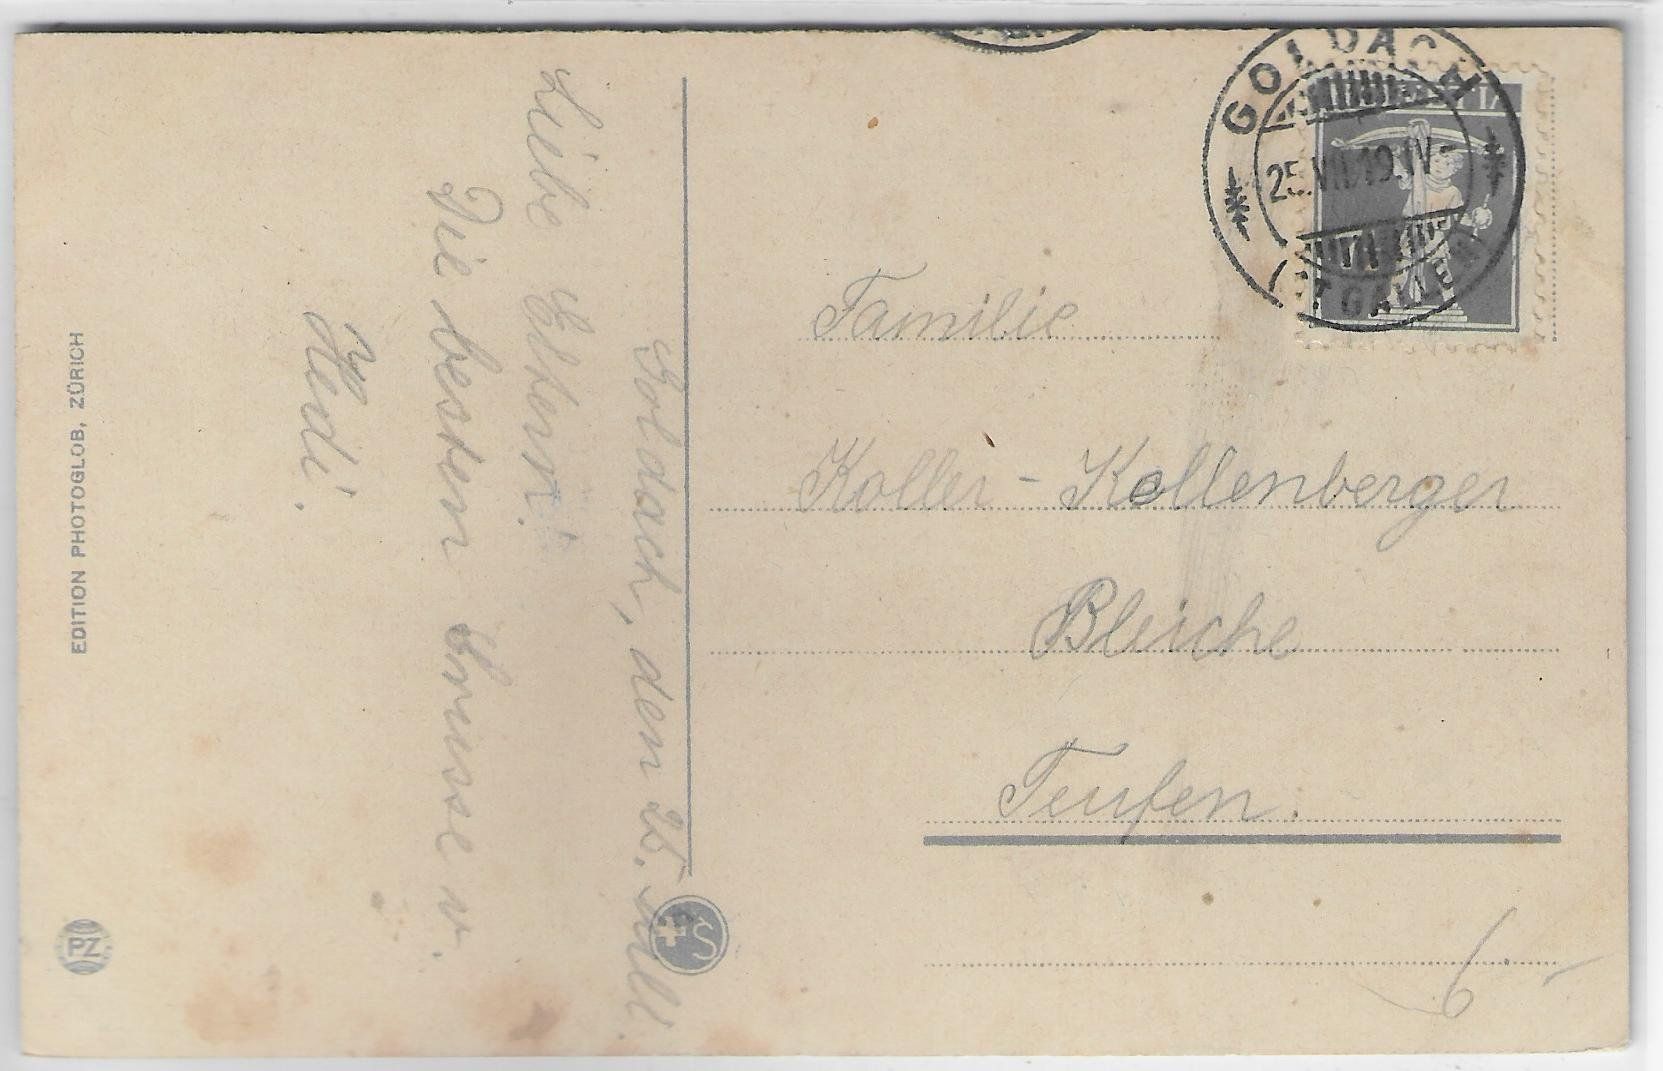 Goldach, den 25. Juli.
Liebe Eltern!
Die besten Grüsse v.
Hedi.
EDITION PHOTOGLOB, ZÜRICH
PZ
S
GOLDACH
25.VII.19.IV-
(ST GALLEN)
Familie
Koller - Kollenberger
Bleiche
Teufen.
6.-